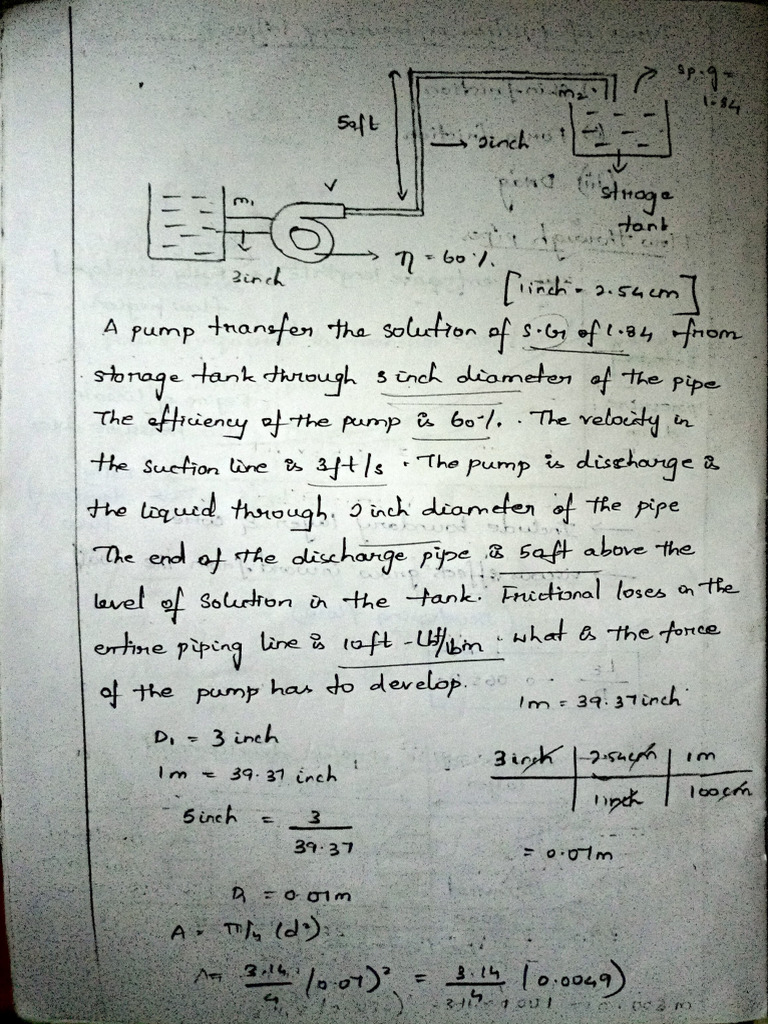 sp.g =
1.84
m2
50ft
→ 2inch
storage
tank
m1
3inch
η = 60%.
[1inch = 2.54cm]
A pump transfer the solution of S.Gr of 1.84 from
storage tank through 3 inch diameter of the pipe
The efficiency of the pump is 60%. The velocity in
the suction line is 3ft/s. The pump is discharge is
the liquid through 2 inch diameter of the pipe
The end of the discharge pipe is 50ft above the
level of solution in the tank. Frictional loses in the
entire piping line is 10ft-lbf/lbm. what is the force
of the pump has to develop.
1m = 39.37inch
D1 = 3 inch
1m = 39.37 inch
3 inch | 2.54cm | 1m
1inch | 100cm
3inch = 3
39.37
= 0.07m
D1 = 0.07m
A = π/4 (d²)
A = 3.14/4 (0.07)² = 3.14/4 (0.0049)